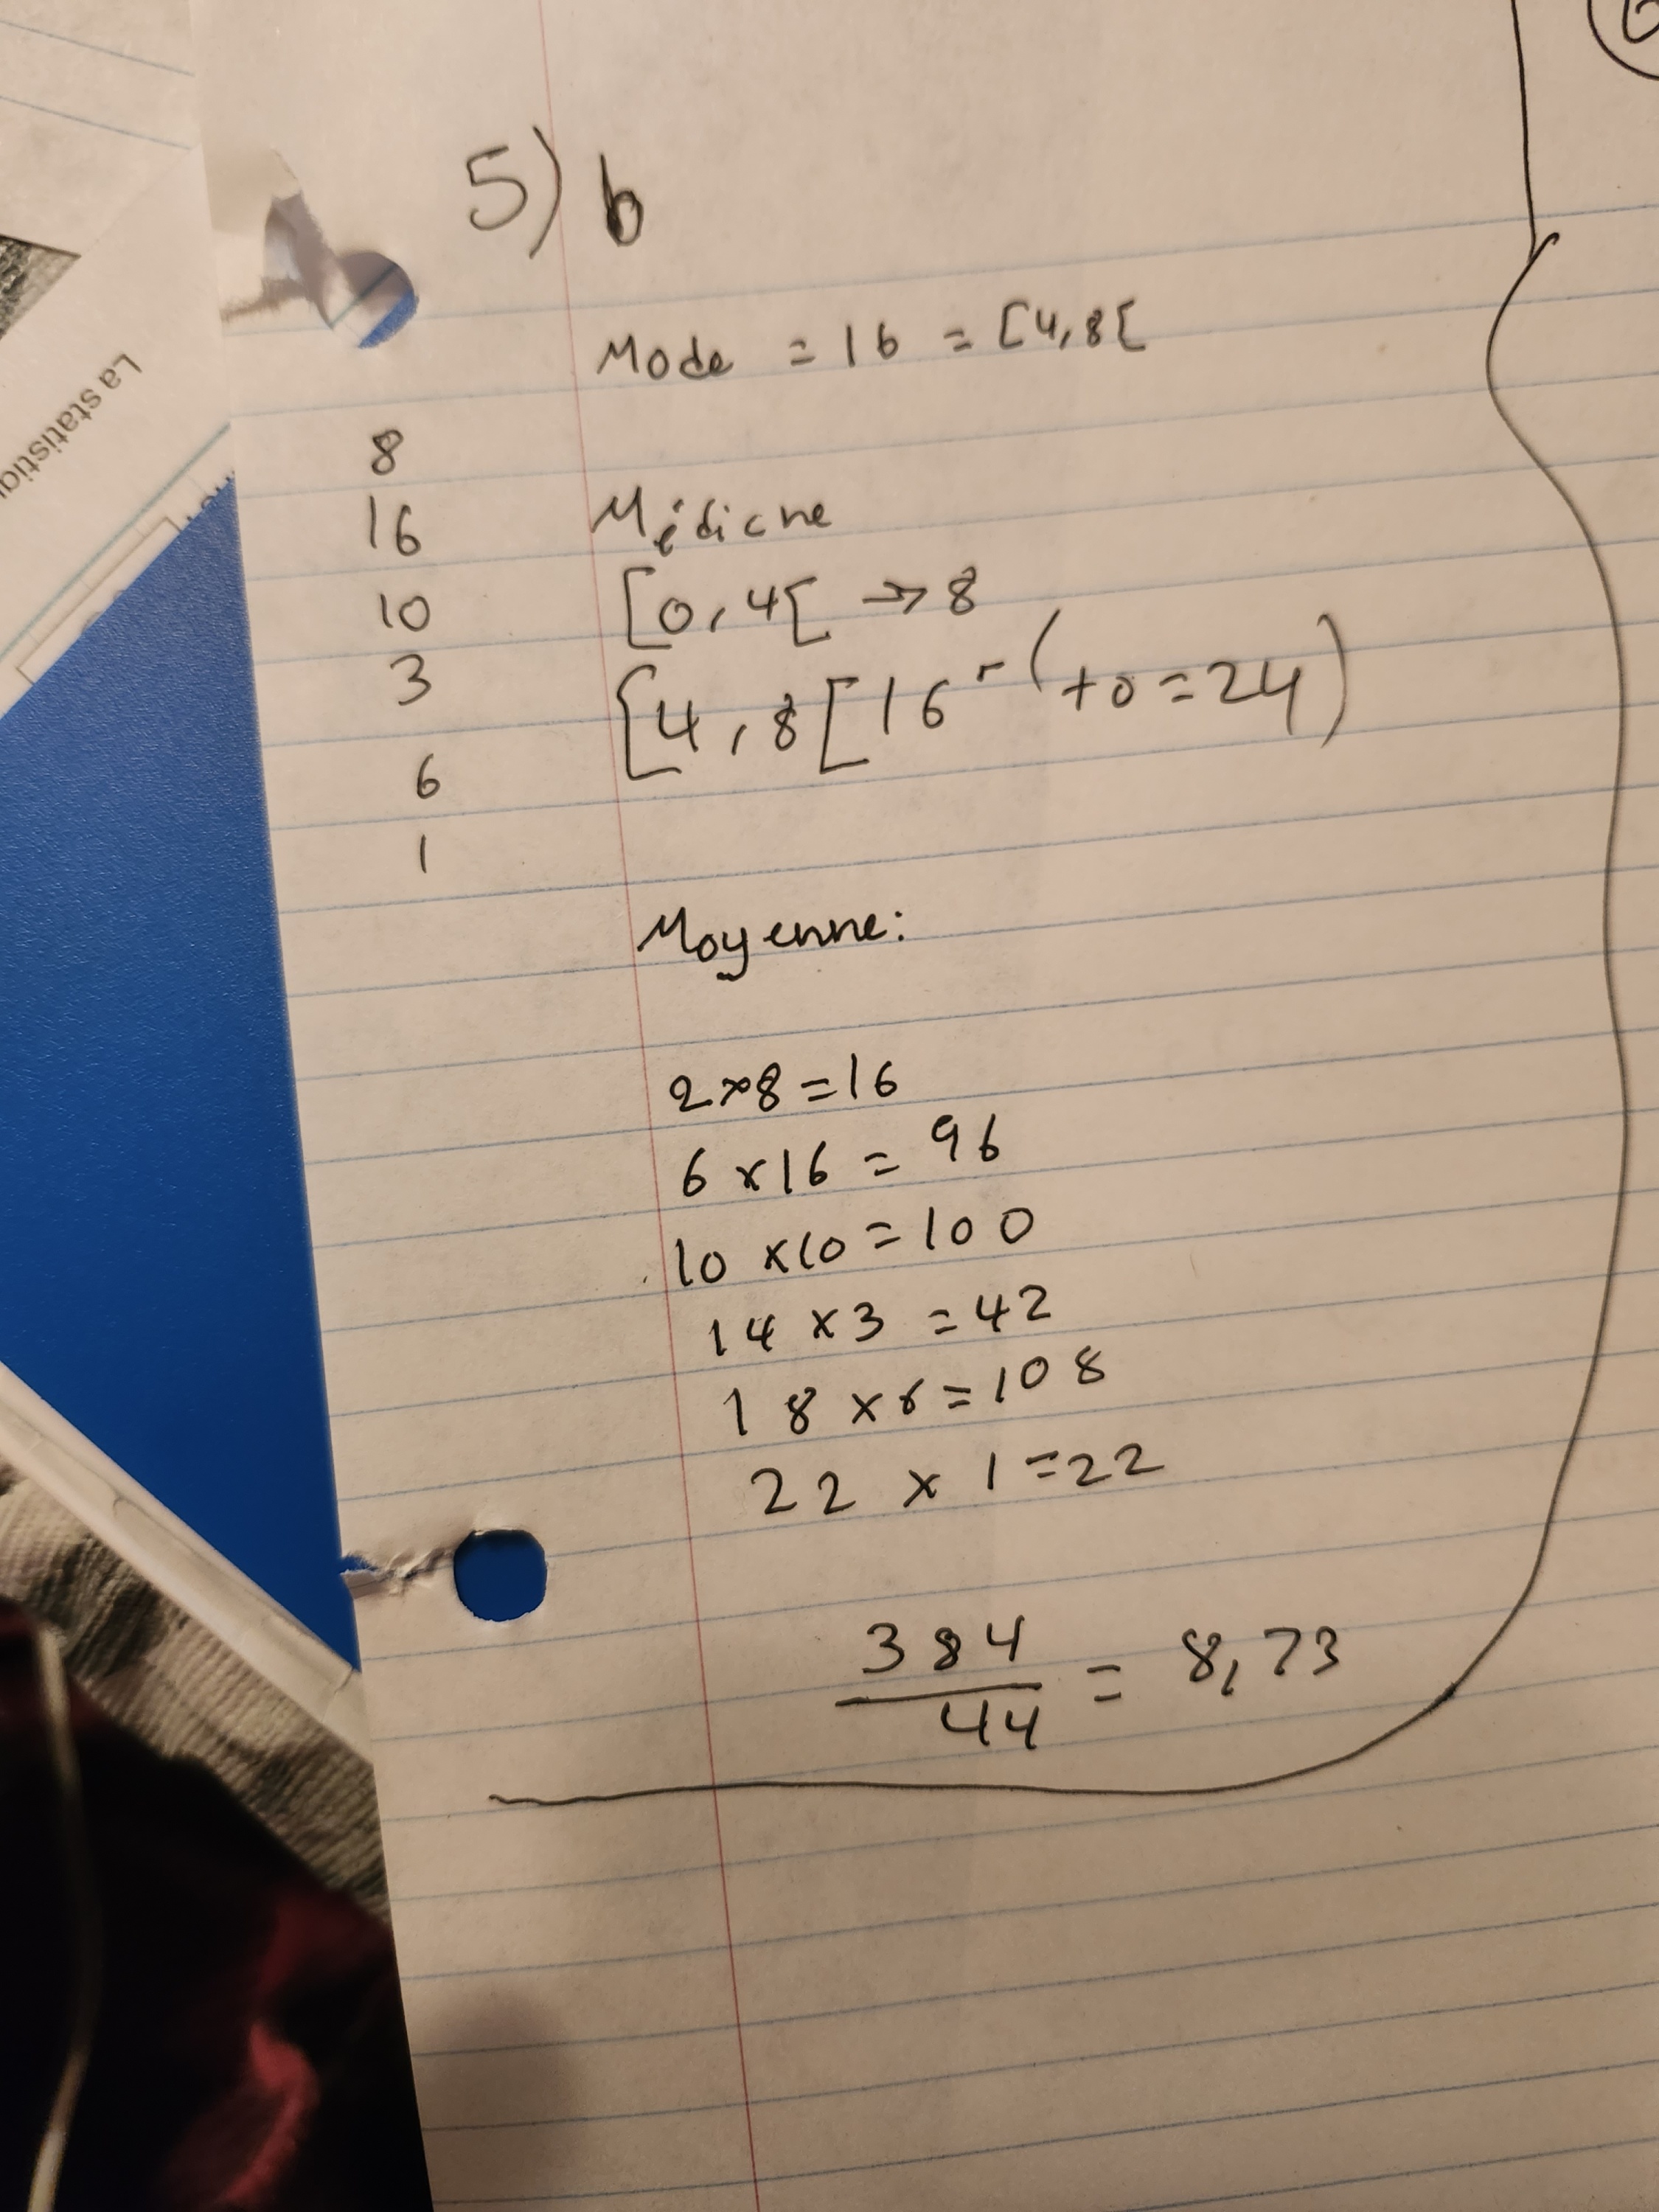 La statistiq
5) b
Mode = 16 = [4,8[
8
16
10
3
6
1
Médiane
[0,4[ → 8
[4,8[ 16 - (to=24)
Moyenne:
2×8=16
6×16 = 96
10×10=100
14×3 =42
18×6=108
22 × 1=22
384
44
= 8,73